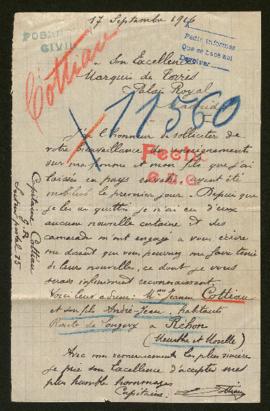 17 Septembre 1916
POBLACION
CIVIL
Pedir informes
Cottiau
Son Excellence
Marquis de Torres
Palais Royal
Madrid
11560
J'ai l'honneur de solliciter de
votre bienveillance des renseignements
sur ma femme et mon fils que j'ai
laissés en pays envahi, ayant été
mobilisé le premier jour. Depuis que
je les ai quittés je n'ai eu d'eux
aucune nouvelle certaine et des
camarades m'ont engagé à vous écrire
me disant que vous pourriez me faire tenir
de leurs nouvelles, ce dont je vous
serais infiniment reconnaissant.
Voici leur adresse: Mme Jeanne Cottiau
et son fils André-Jean, habitants
Route de Longwy à Réhon
(Meurthe et Moselle)
Avec mes remerciements les plus sincères
je prie son Excellence d'accepter mes
plus humbles hommages
Capitaine:
Fecha
Capitaine Cottiau
Secteur postal 15